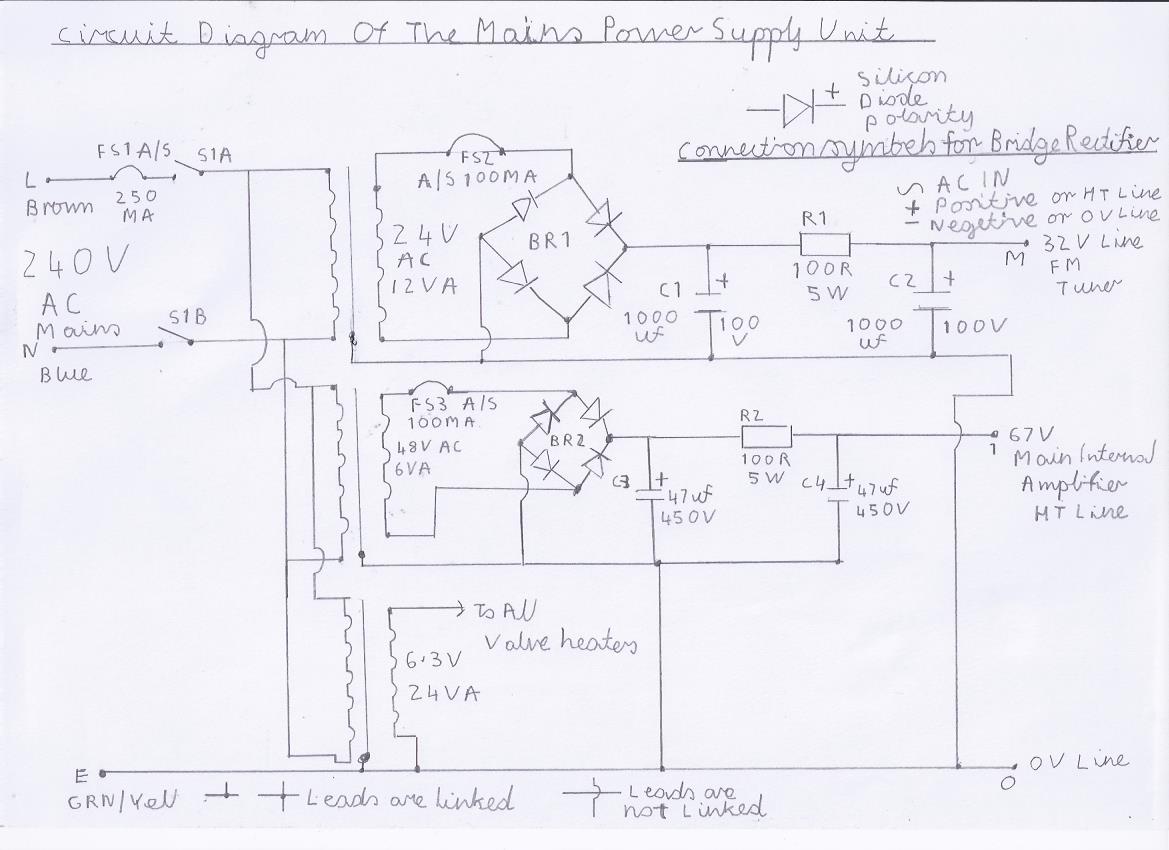 Circuit Diagram Of The Mains Power Supply Unit
+ Silicon
Diode
polarity
Connection symbols for Bridge Rectifier
∽ AC IN
+ Positive or HT Line
− Negetive or 0V Line
FS1 A/S
S1A
L
Brown
250
MA
240V
AC
Mains
S1B
N
Blue
FS2
A/S 100MA
24V
AC
12VA
BR1
C1
+
1000
uf
100
V
R1
100R
5W
C2
+
1000
uf
100V
M
32V Line
FM
Tuner
FS3 A/S
100MA
48V AC
6VA
BR2
C3
+
47uf
450V
R2
100R
5W
C4
+
47uf
450V
1
67V
Main Internal
Amplifier
HT Line
To All
Valve heaters
6.3V
24VA
E
GRN/Yell
Leads are linked
Leads are
not Linked
0V Line
0